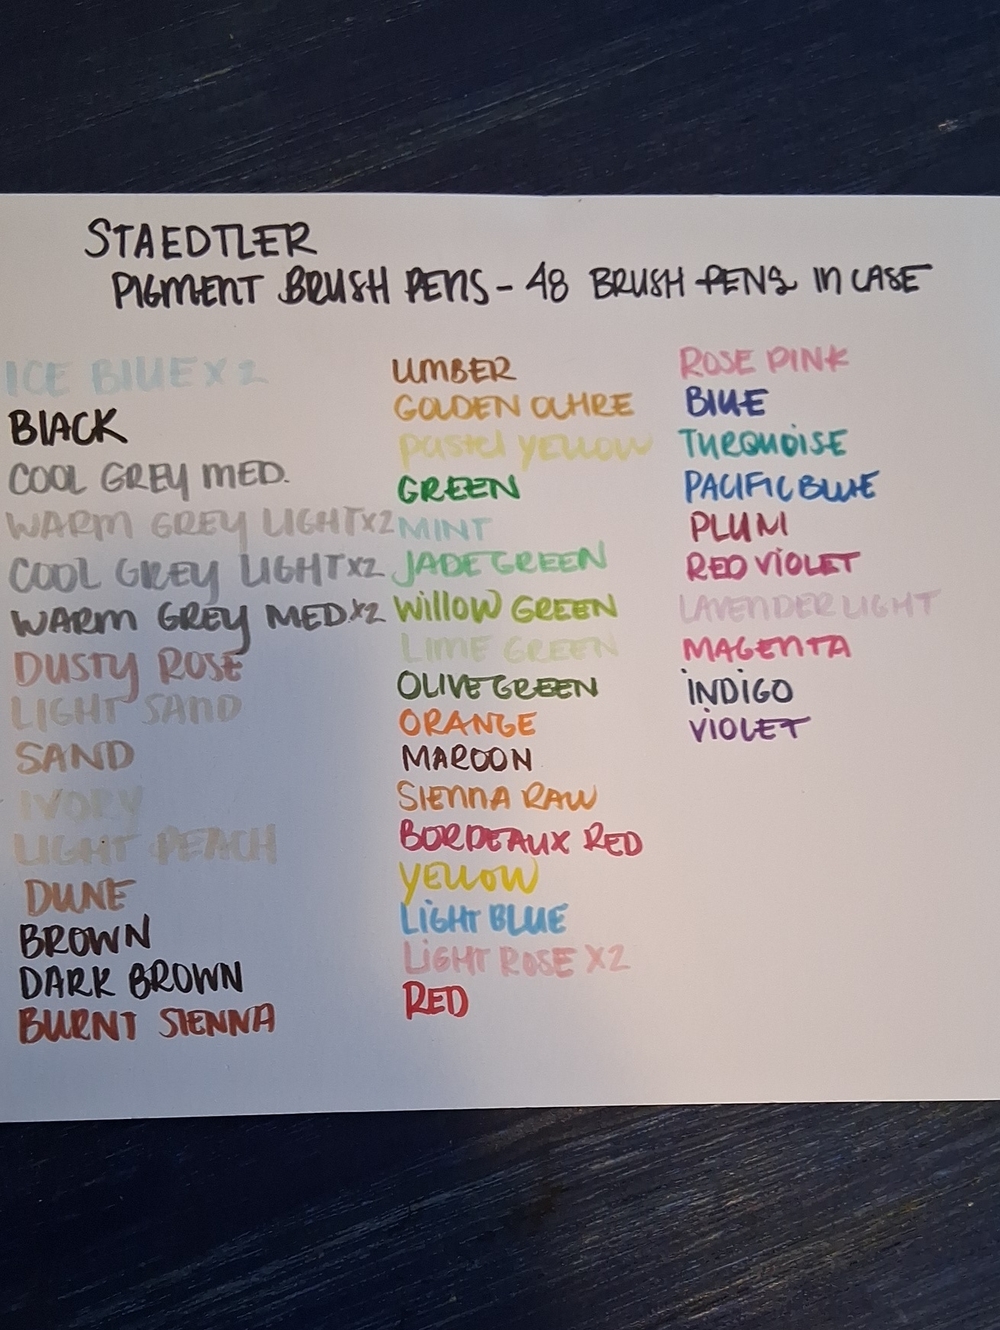 STAEDTLER
PIGMENT BRUSH PENS - 48 BRUSH PENS IN CASE
ICE BLUE X 2
BLACK
COOL GREY MED.
WARM GREY LIGHT X2
COOL GREY LIGHT X2
WARM GREY MED X2
DUSTY ROSE
LIGHT SAND
SAND
IVORY
LIGHT PEACH
DUNE
BROWN
DARK BROWN
BURNT SIENNA
UMBER
GOLDEN OCHRE
Pastel YELLOW
GREEN
MINT
JADE GREEN
WILLOW GREEN
LIME GREEN
OLIVE GREEN
ORANGE
MAROON
SIENNA RAW
BORDEAUX RED
YELLOW
LIGHT BLUE
LIGHT ROSE X2
RED
ROSE PINK
BLUE
TURQUOISE
PACIFIC BLUE
PLUM
RED VIOLET
LAVENDER LIGHT
MAGENTA
INDIGO
VIOLET